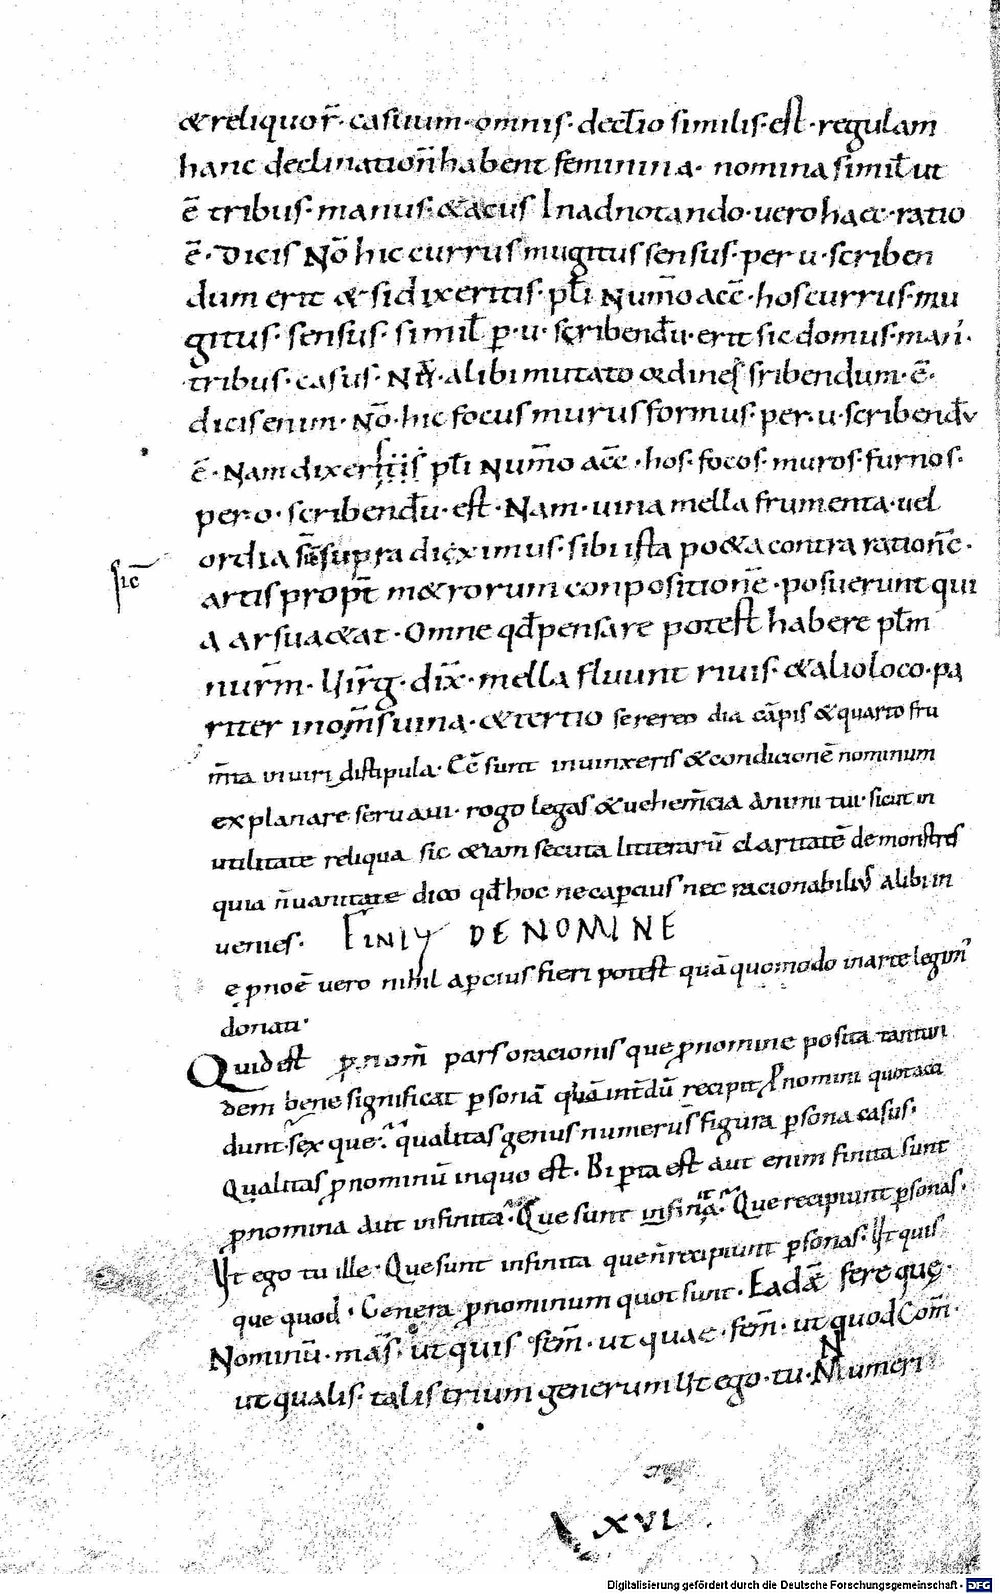 &reliquor̄· casuum· omnis· decl̄io similis· est· regulam
hanc declination̄ habent feminina· nomina simil̄ ut
ē tribus· manus· &acus Inadnotando· uero haec· ratio
ē· Dicis Nō hic currus mugitus sensus· per u· scriben
dum erit & si dixeritis· pl̄i Num̄o acc̄· hos currus· mu
gitus· sensus· simil̄ p· u· scribend̄u· erit sic domus· man̄·
tribus· casus· N alibi mutato ordines sribendum· ē·
dicis enim· Nō· hic focus murus formus· per· u· scribend̄u
ē· Nam dixeritis pl̄i Num̄o acc̄· hos· focos· muros· furnos·
per· o· scribend̄u· est· Nam· uina mella frumenta· uel
ordia supra diximus· sibi ista po&a contra ration̄e·
sic̄
artis prop̄t m&rorum conposition̄e· posuerunt qui
a ar suac&at· Omne qd̄ pensare potest habere pl̄m
nur̄m· Uir̄g· dix̄· mella fluunt riuis· &alio loco· pa
riter inom̄s uina· &tertio sereren dia cāpis & quarto fru
m̄ta in uiri distipula· Cē sunt inuinxeris & condicionē nominum
explanare seruaui· rogo legas & uehem̄cia animi tui· sicut in
utilitate reliqua sic &iam secuta litterarū claritatē demonstres
quia n̄ uanitate dico qd̄ hoc nec apcius nec racionabilius alibi in
uenies· FINIT DE NOMINE
e pnoē uero nihil apcius fieri potest quā quomodo in arte legim̄
donati·
Quid est p nom̄ pars oracionis que pnomine posita tantun
dem bene significat psonā quā int̄dū recipit Pnomini quot acci
dunt· sex que· qualitas genus numerus figura psona casus·
Qualitas pnominū in quo est· Bi pta est aut enim finita sunt
pnomina aut infinita· Que sunt infinita· Que recipiunt psonas·
Ut ego tu ille· Que sunt infinita que n̄ recipiunt psonas· Ut quis
que quod· Genera pnominum quot sunt· Eadā fere que·
Nominū· mas̄· ut quis fem̄· ut quae· fem̄· ut quod Com̄·
ut qualis· talis trium generum Ut ego· tu· Numeri
XVI
Digitalisierung gefördert durch die Deutsche Forschungsgemeinschaft · DFG